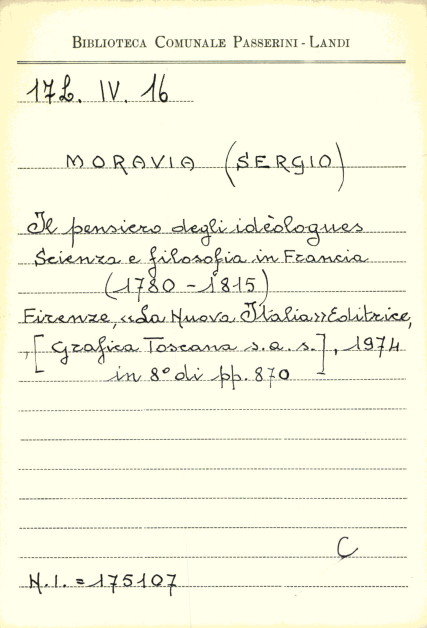 BIBLIOTECA COMUNALE PASSERINI - LANDI
17L. IV. 16
MORAVIA (SERGIO)
Il pensiero degli idèologues
Scienza e filosofia in Francia
(1780 - 1815)
Firenze, «La Nuova Italia» Editrice,
, [Grafica Toscana s.a.s.], 1974
in 8° di pp. 870
C
N.I. = 175107